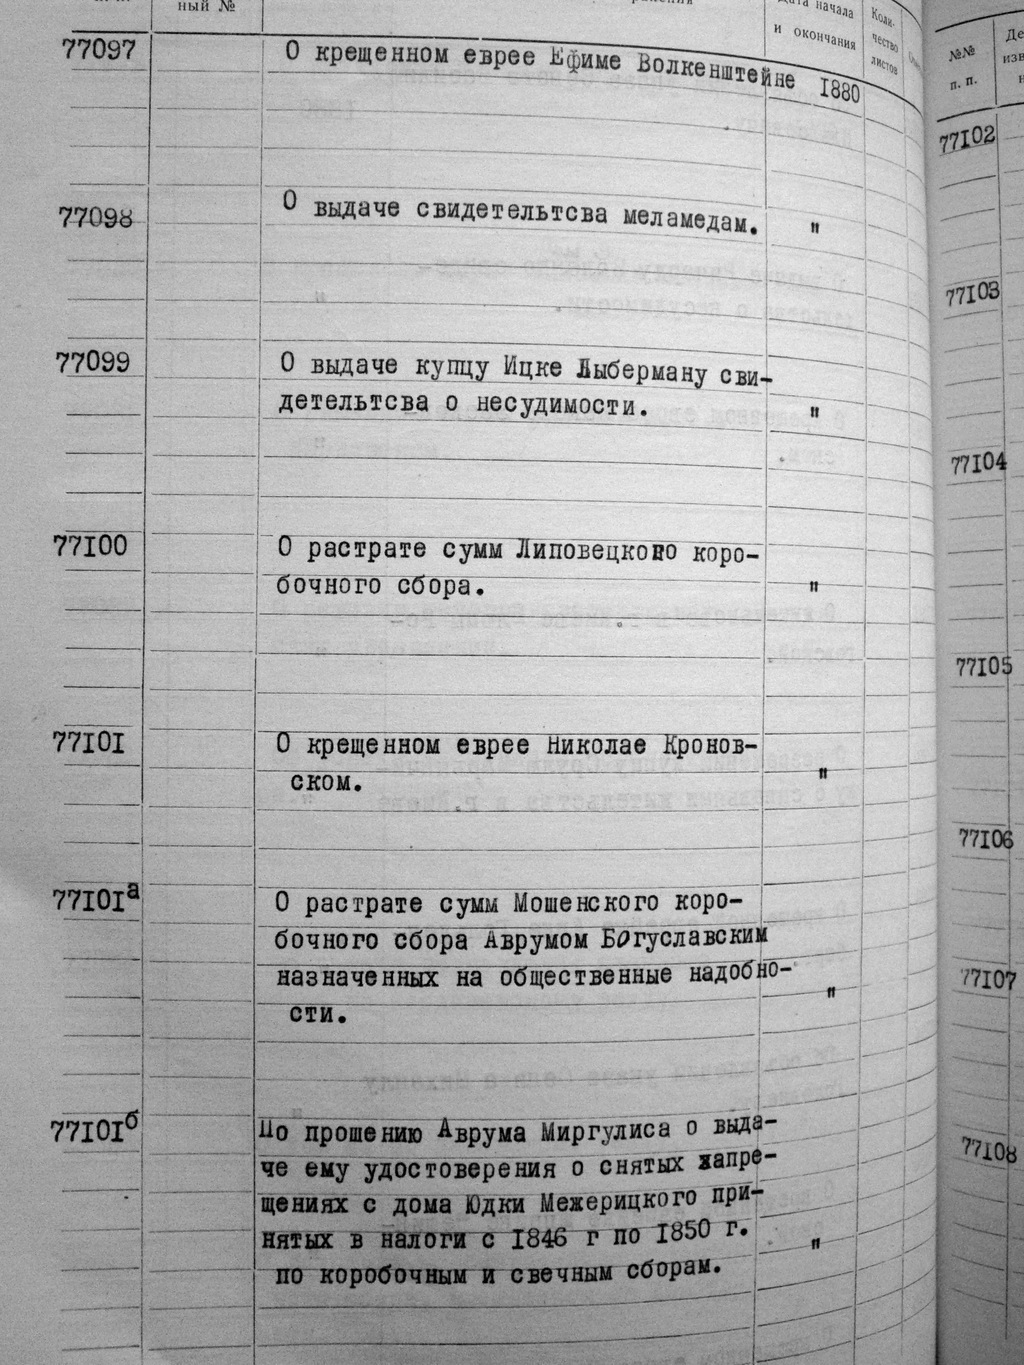 ный №
Дата начала
и окончания
Коли-
чество
листов
77097 О крещенном еврее Ефиме Волкенштейне 1880
77098 О выдаче свидетельтсва меламедам. "
77099 О выдаче купцу Ицке Лыберману сви-
детельтсва о несудимости. "
77I00 О растрате сумм Липовецкого коро-
бочного сбора. "
77I0I О крещенном еврее Николае Кронов-
ском. "
77I0Iа О растрате сумм Мошенского коро-
бочного сбора Аврумом Богуславским
назначенных на общественные надобно-
сти. "
77I0Iб По прошению Аврума Миргулиса о выда-
че ему удостоверения о снятых запре-
щениях с дома Юдки Межерицкого при-
нятых в налоги с I846 г по I850 г. "
по коробочным и свечным сборам.
№№
п. п.
77I02
77I03
77I04
77I05
77I06
77I07
77I08